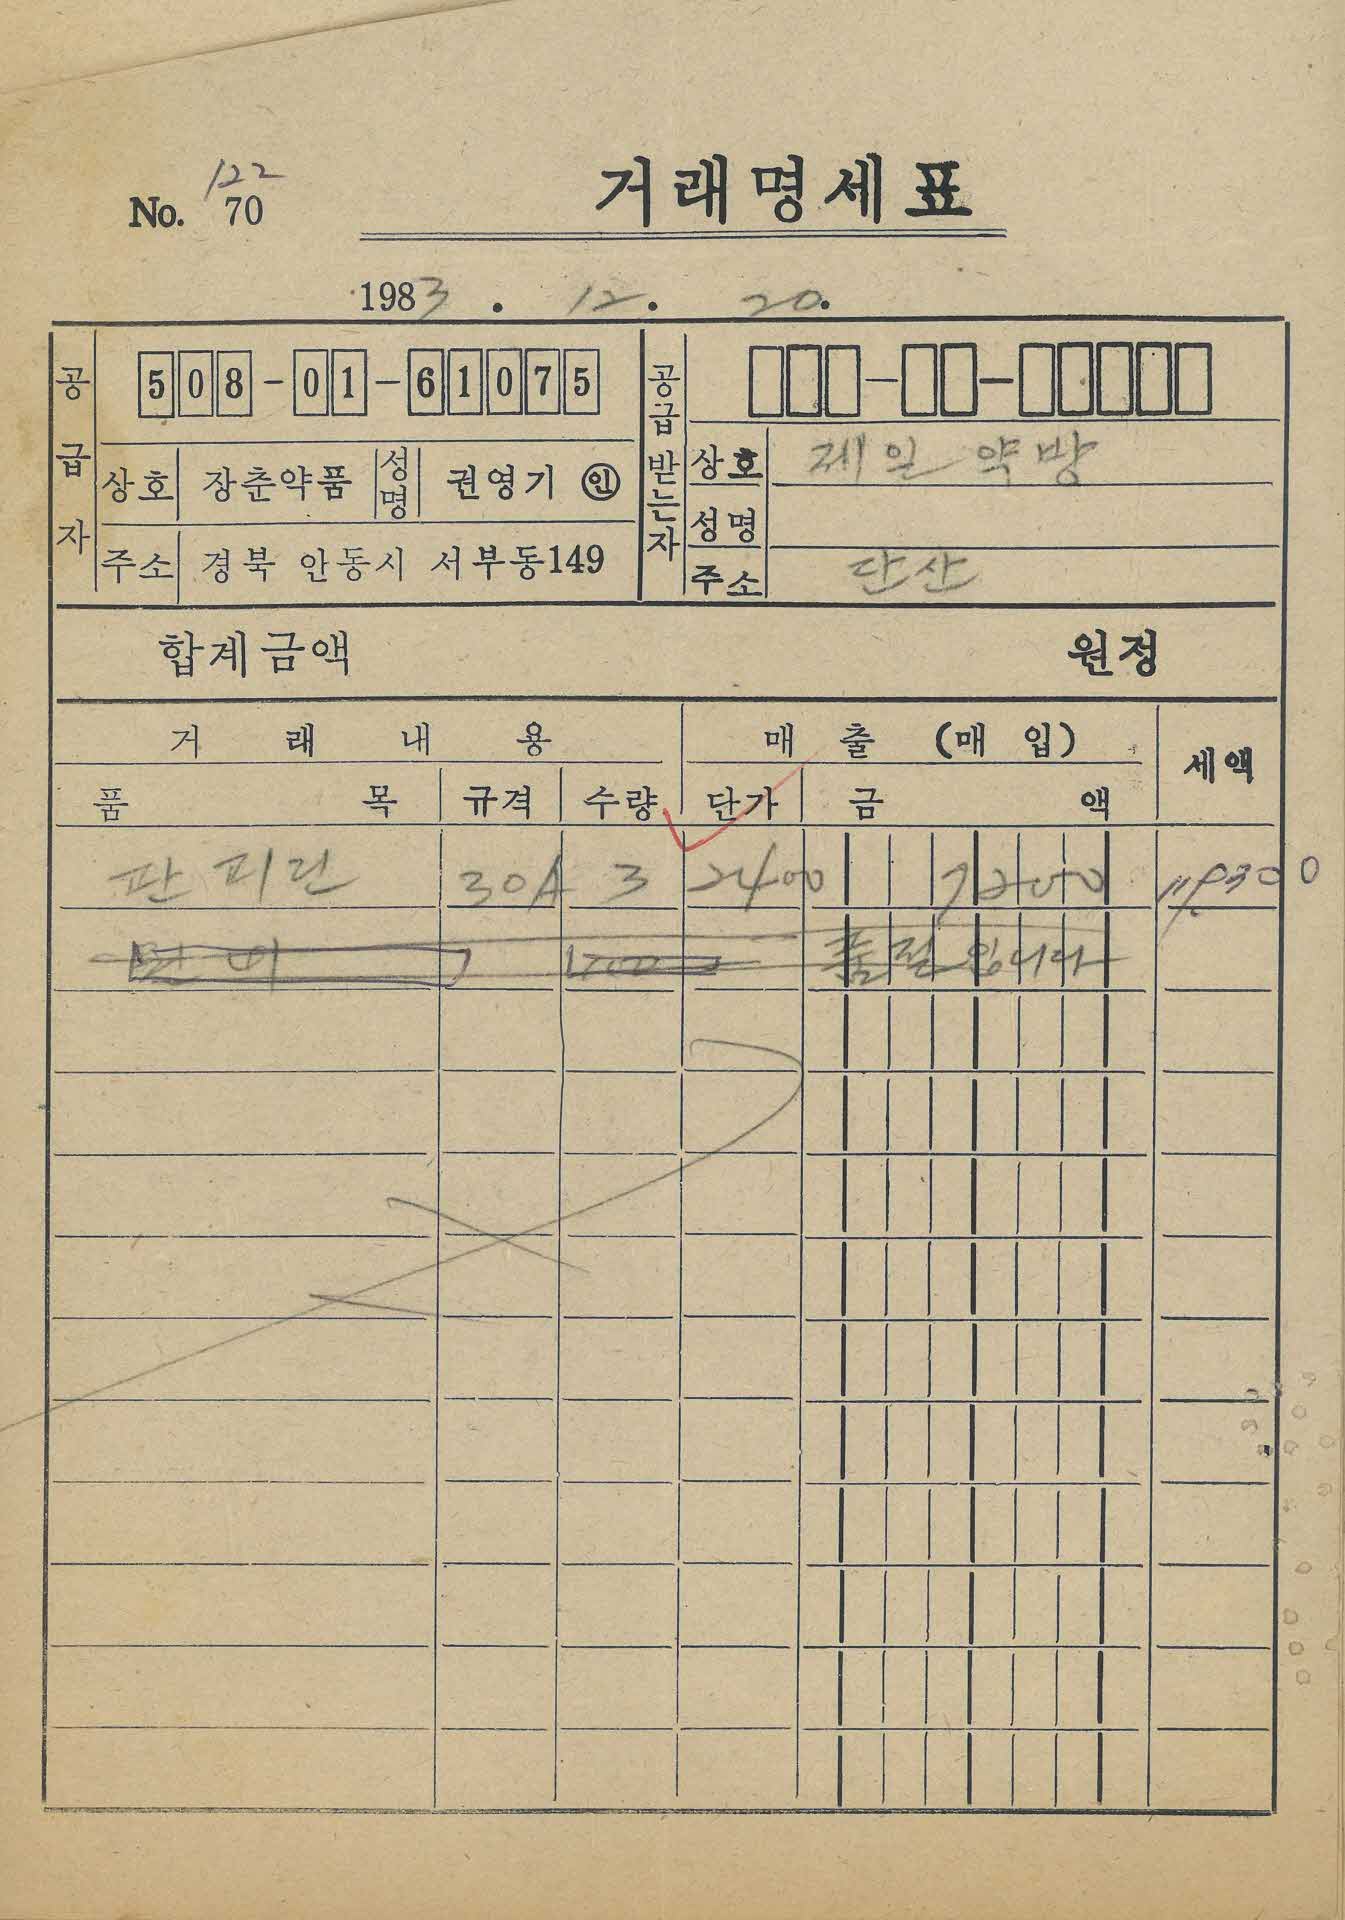 122
No. 70
거래명세표
1983 . 12 . 20.
공급자
508-01-61075
상호 장춘약품 성명 권영기 인
주소 경북 안동시 서부동149
공급받는자
상호 제일 약방
성명
주소 단산
합계금액 원정
거래내용 매출 (매입) 세액
품목 규격 수량 단가 금액
판피린 30A 3 2400 7200
품절입니다